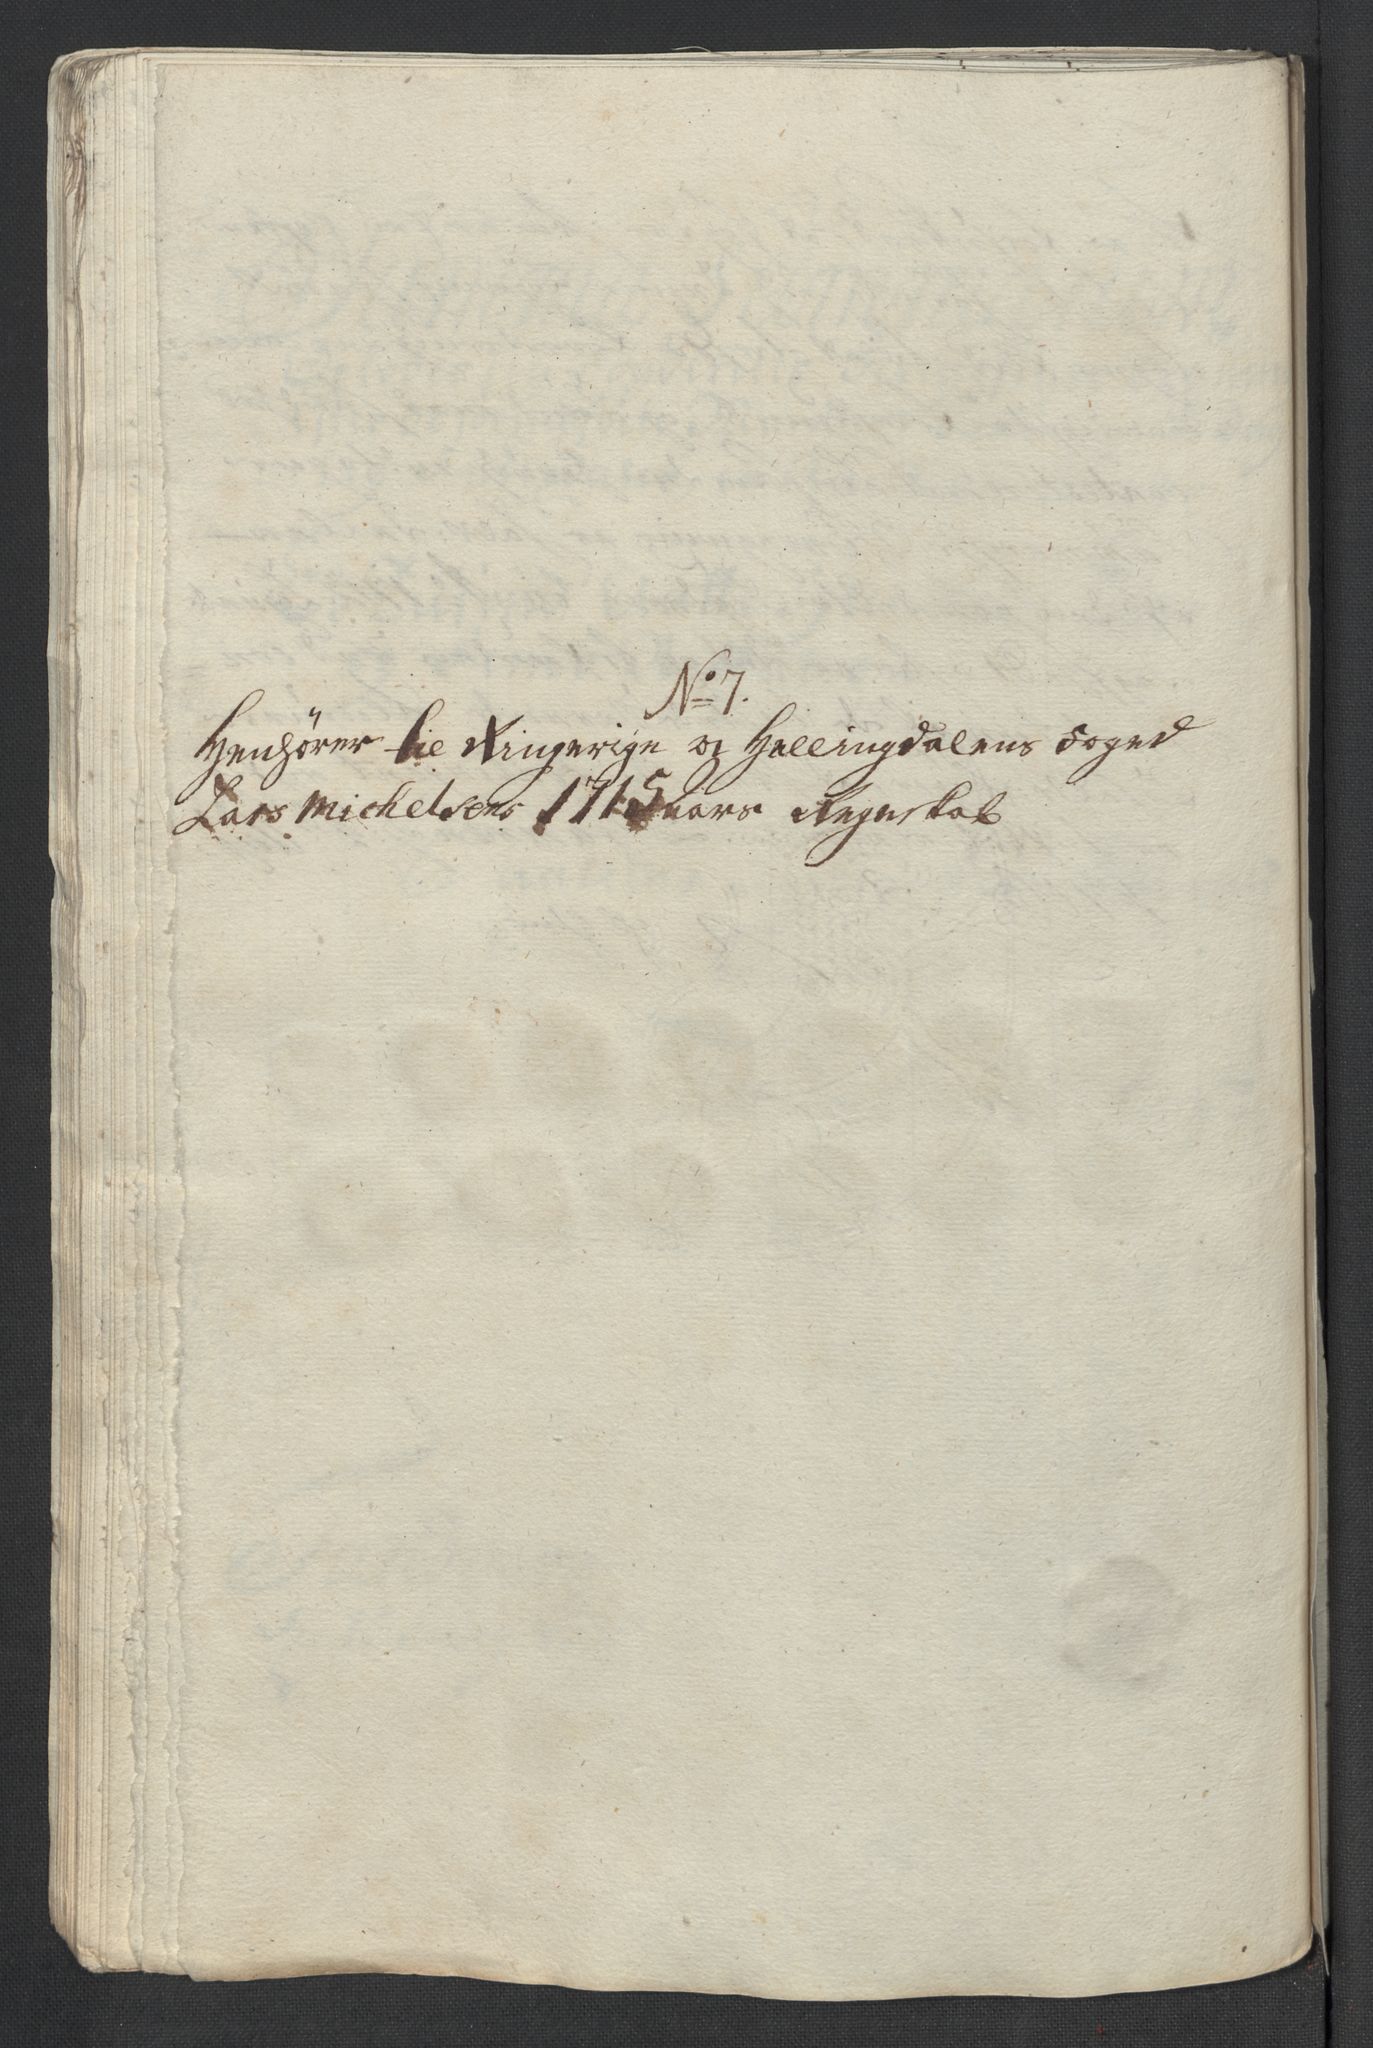 No 7.
Henhörer til Ringerige og Hallingdalens foged
Lars Michelsens 1715 aars Regnskab